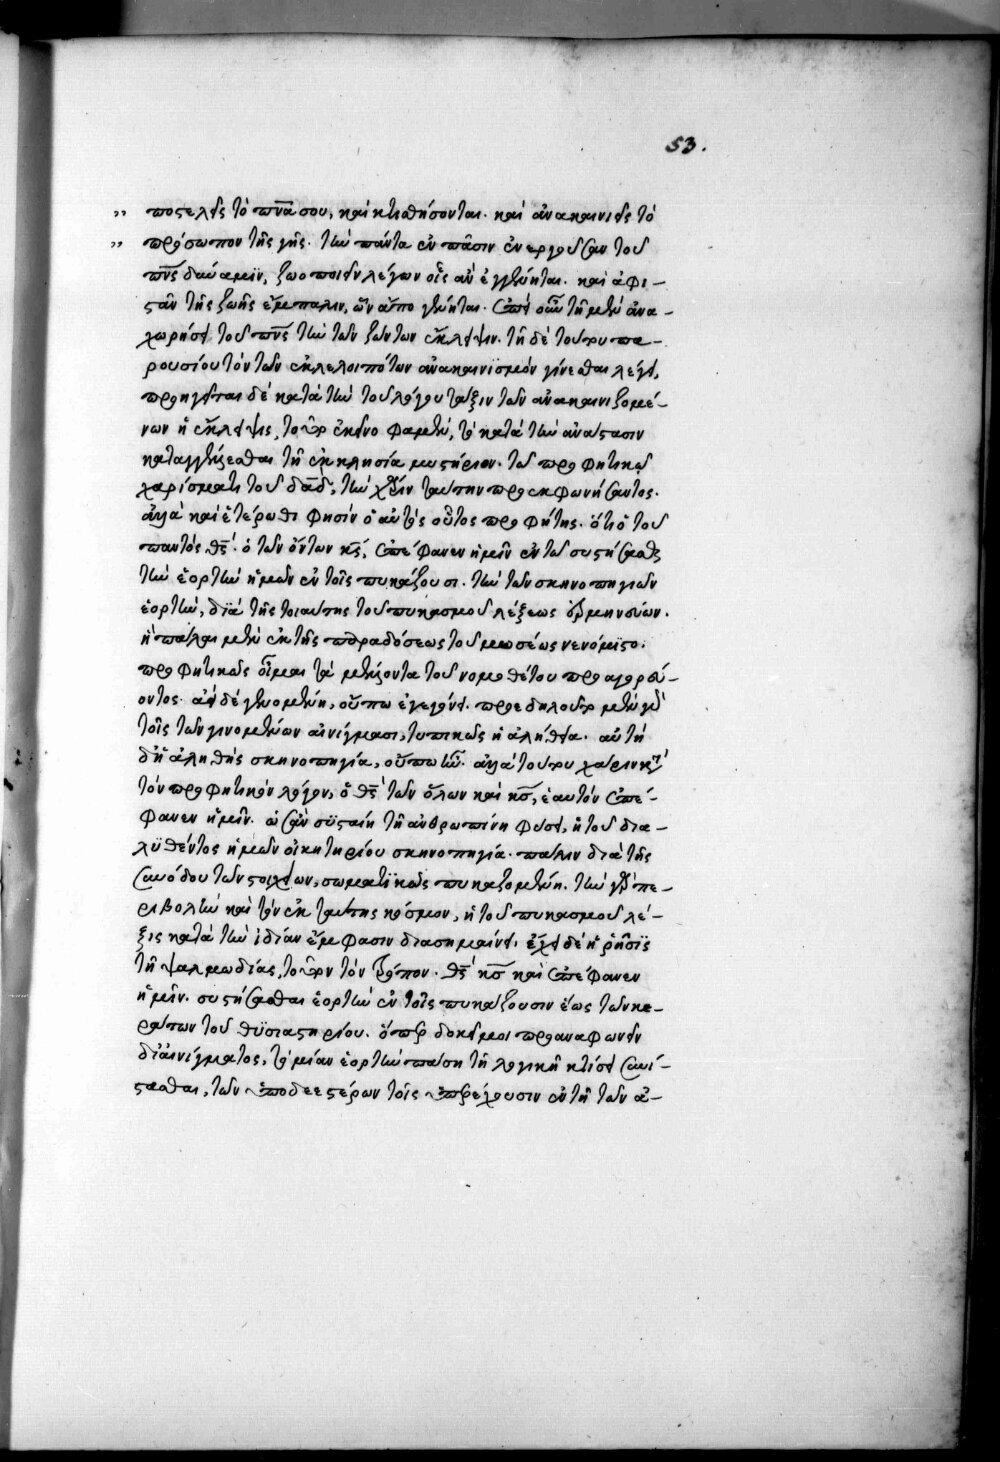 53.
„ ποστελεῖς τὸ πν̅α σου, καὶ κτισθήσονται. καὶ ἀνακαινιεῖς τὸ
„ πρόσωπον τῆς γῆς. τὴν πάντα ἐν πᾶσιν ἐνεργοῦσαν τοῦ
πν̅ς δύναμϊν, ζωοποιεῖν λέγων οἷς ἂν ἐγγένηται. καὶ ἀφι-
στᾶν τῆς ζωῆς ἔμπαλιν, ὧν ἄπο γένηται. ἐπεὶ οὖν τῆ μὲν ἀνα-
χωρήσει τοῦ πν̅ς τὴν τῶν ζώντων ἔκλειψιν. τῆ δὲ τούτου πα-
ρουσίου τὸν τῶν ἐκλελοιπότων ἀνακαινϊσμὸν γίνεσθαι λέγει,
προηγεῖται δὲ κατὰ τὴν τοῦ λόγου τάξιν τῶν ἀνακαινιζομέ-
νων ἡ ἔκλειψις, τοῦτο ἐκεῖνο φαμὲν, τὸ κατὰ τὴν ἀνάστασιν
καταγγέλεσθαι τῆ ἐκκλησία μυστήριον. τῶ προφητικῶ
χαρίσματι τοῦ δα̅δ, τὴν χάριν ταύτην προεκφωνήσαντος.
ἀλλὰ καὶ ἑτέρωθι φησὶν ὁ αὐτὸς οὗτος προφήτης. ὅτι ὁ τοῦ
παντὸς θς̅. ὁ τῶν ὄντων κς̅, ἐπέφανεν ἡμῖν ἐν τῶ συστήσασθαι
τὴν ἑορτὴν ἡμῶν ἐν τοῖς πυκάζουσι. τὴν τῶν σκηνοπηγιῶν
ἑορτὴν, διὰ τῆς τοιαύτης τοῦ πυκασμοῦ λέξεως ἑρμηνεύων.
ἣ πάλαι μὲν ἐκ τῆς παραδόσεως τοῦ μωσέως νενόμϊστο.
προφητικῶς οἶμαι τὰ μέλλοντα τοῦ νομοθέτου προαγορεύ-
οντος. ἀεὶ δὲ γενομένη, οὔπω ἐγεγόνει. προεδηλοῦτο μὲν γὰρ
τοῖς τῶν γινομένων αἰνίγμασι, τυπικῶς ἡ ἀλήθεια. αὐτὴ
δὲ ἡ ἀληθὴς σκηνοπηγία, οὔπω ἦν. ἀλλὰ τούτου χάριν κατὰ
τὸν προφητικὸν λόγον, ὁ θς̅ τῶν ὅλων καὶ κς̅, ἑαυτὸν ἐπέ-
φανεν ἡμῖν. ὡς ἂν συσταίη τῆ ἀνθρωπίνη φύσει, ἡ τοῦ δια-
λϋθέντος ἡμῶν οἰκητηρίου σκηνοπηγία. πάλιν διὰ τῆς
συνόδου τῶν στοιχείων, σωματϊκῶς πυκαζομένη. τὴν γὰρ πε-
ριβολὴν καὶ τὸν ἐκ ταύτης κόσμον, ἡ τοῦ πυκασμοῦ λέ-
ξις κατὰ τὴν ἰδίαν ἔμφασιν διασημαίνει, ἔχει δὲ ἡ ῥῆσϊς
τῆς ψαλμωδίας, τοῦτον τὸν τρόπον. θς̅ κς̅ καὶ ἐπέφανεν
ἡμῖν. συστήσασθαι ἑορτὴν ἐν τοῖς πυκάζουσιν ἕως τῶν κε-
ράτων τοῦ θϋσιαστηρίου. ὅπερ δοκεῖ μοι προαναφωνεῖν
δι᾽ αἰνίγματος, τὸ μίαν ἑορτὴν πάση τῆ λογικῆ κτίσει συνί-
στασθαι, τῶν ὑποδεεστέρων τοῖς ὑπερέχουσιν ἐν τῆ τῶν ἀ-